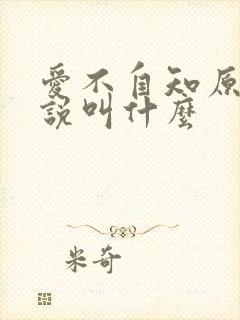 愛不自知原
說叫什麼
米奇